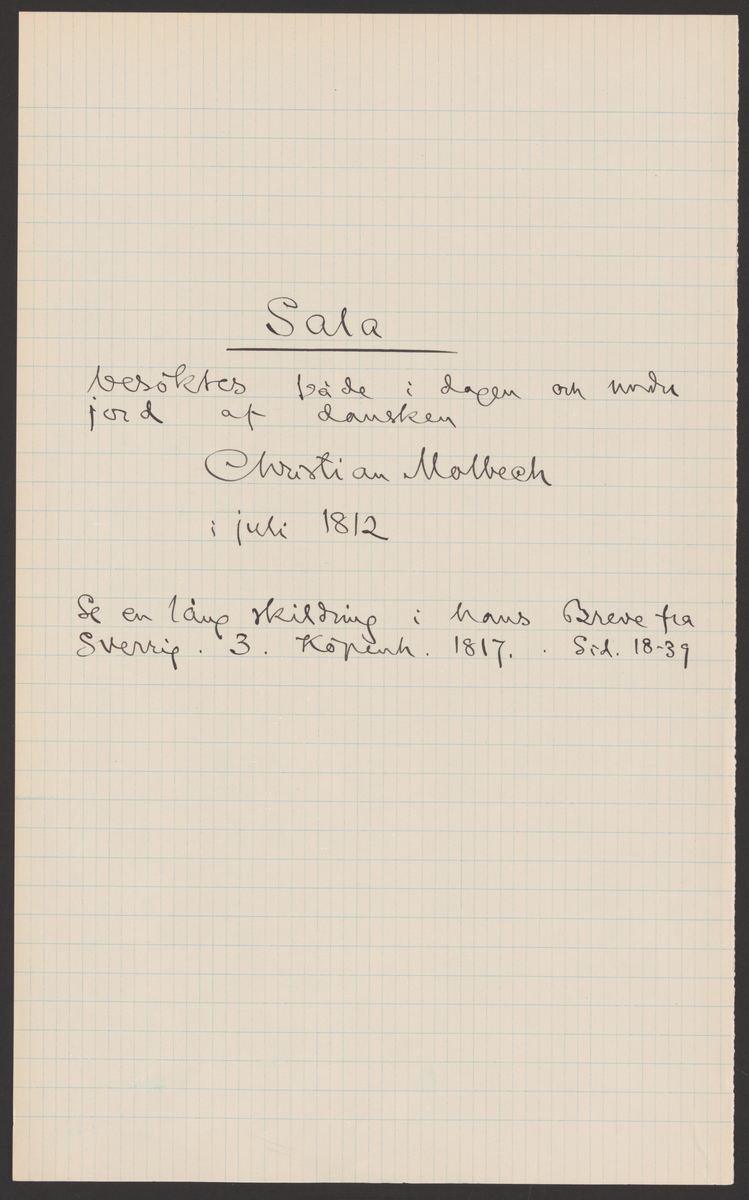 Sala
besöktes både i dagen och under
jord af dansken
Christian Molbech
i juli 1812
Se en lång skildring i hans Breve fra
Sverrig. 3. Köpenh. 1817. Sid. 18-39